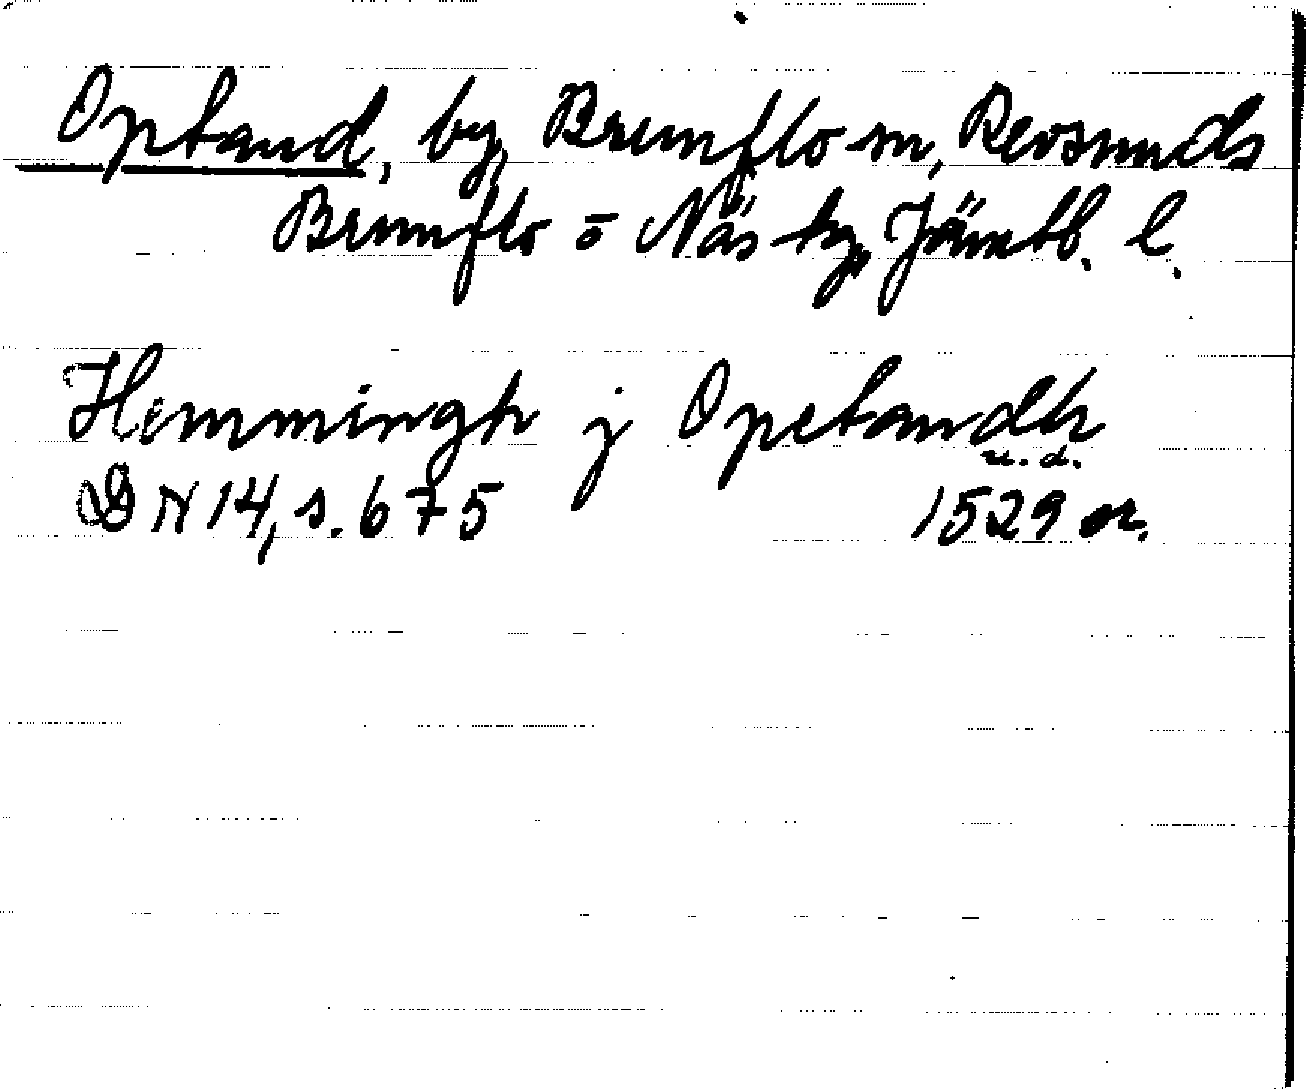 Optand, by, Brunflo sn, Revsunds
Brunflo o Näs tg, Jämtl. l.
Hemmingh j Opetandh
u. d.
DN 14, s. 675 1529 or.